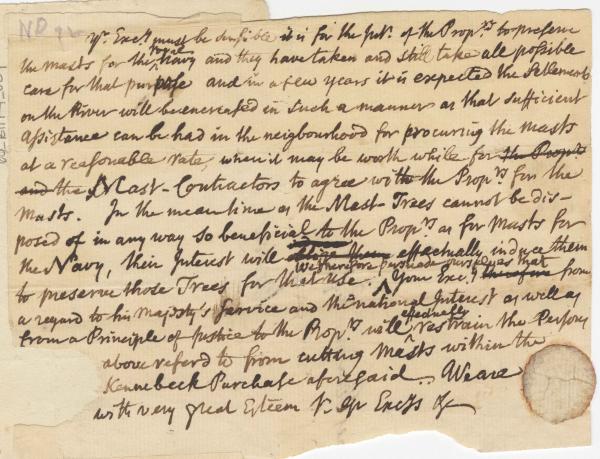 ND
Yr. Excy. must be sensible it is for the Int. of the Proprs. to preserve
the masts for the royal Navy and they have taken and still take all possible
care for that purpose and in a few years it is expected the Settlements
on the River will be encreased in such a manner as that sufficient
assistance can be had in the neighbourhood for procuring the masts
at a reasonable rate, when it may be worth while for the Proprs
and the Mast-Contractors to agree with the Proprs for the
masts. In the mean time as the Mast-Trees cannot be dis-
posed of in any way so beneficial to the Proprs. as for Masts for
the Navy, their Interest will effectually induce them
We therefore perswade ourselves that
to preserve those Trees for that use. Your Excy. therefore from
a regard to his majesty's Service and the national Interest as well as
from a Principle of Justice to the Proprs. will effectually restrain the Persons
above referd to from cutting Masts within the
Kennebeck Purchase aforesaid. We are
with very great Esteem Yr Excys &c